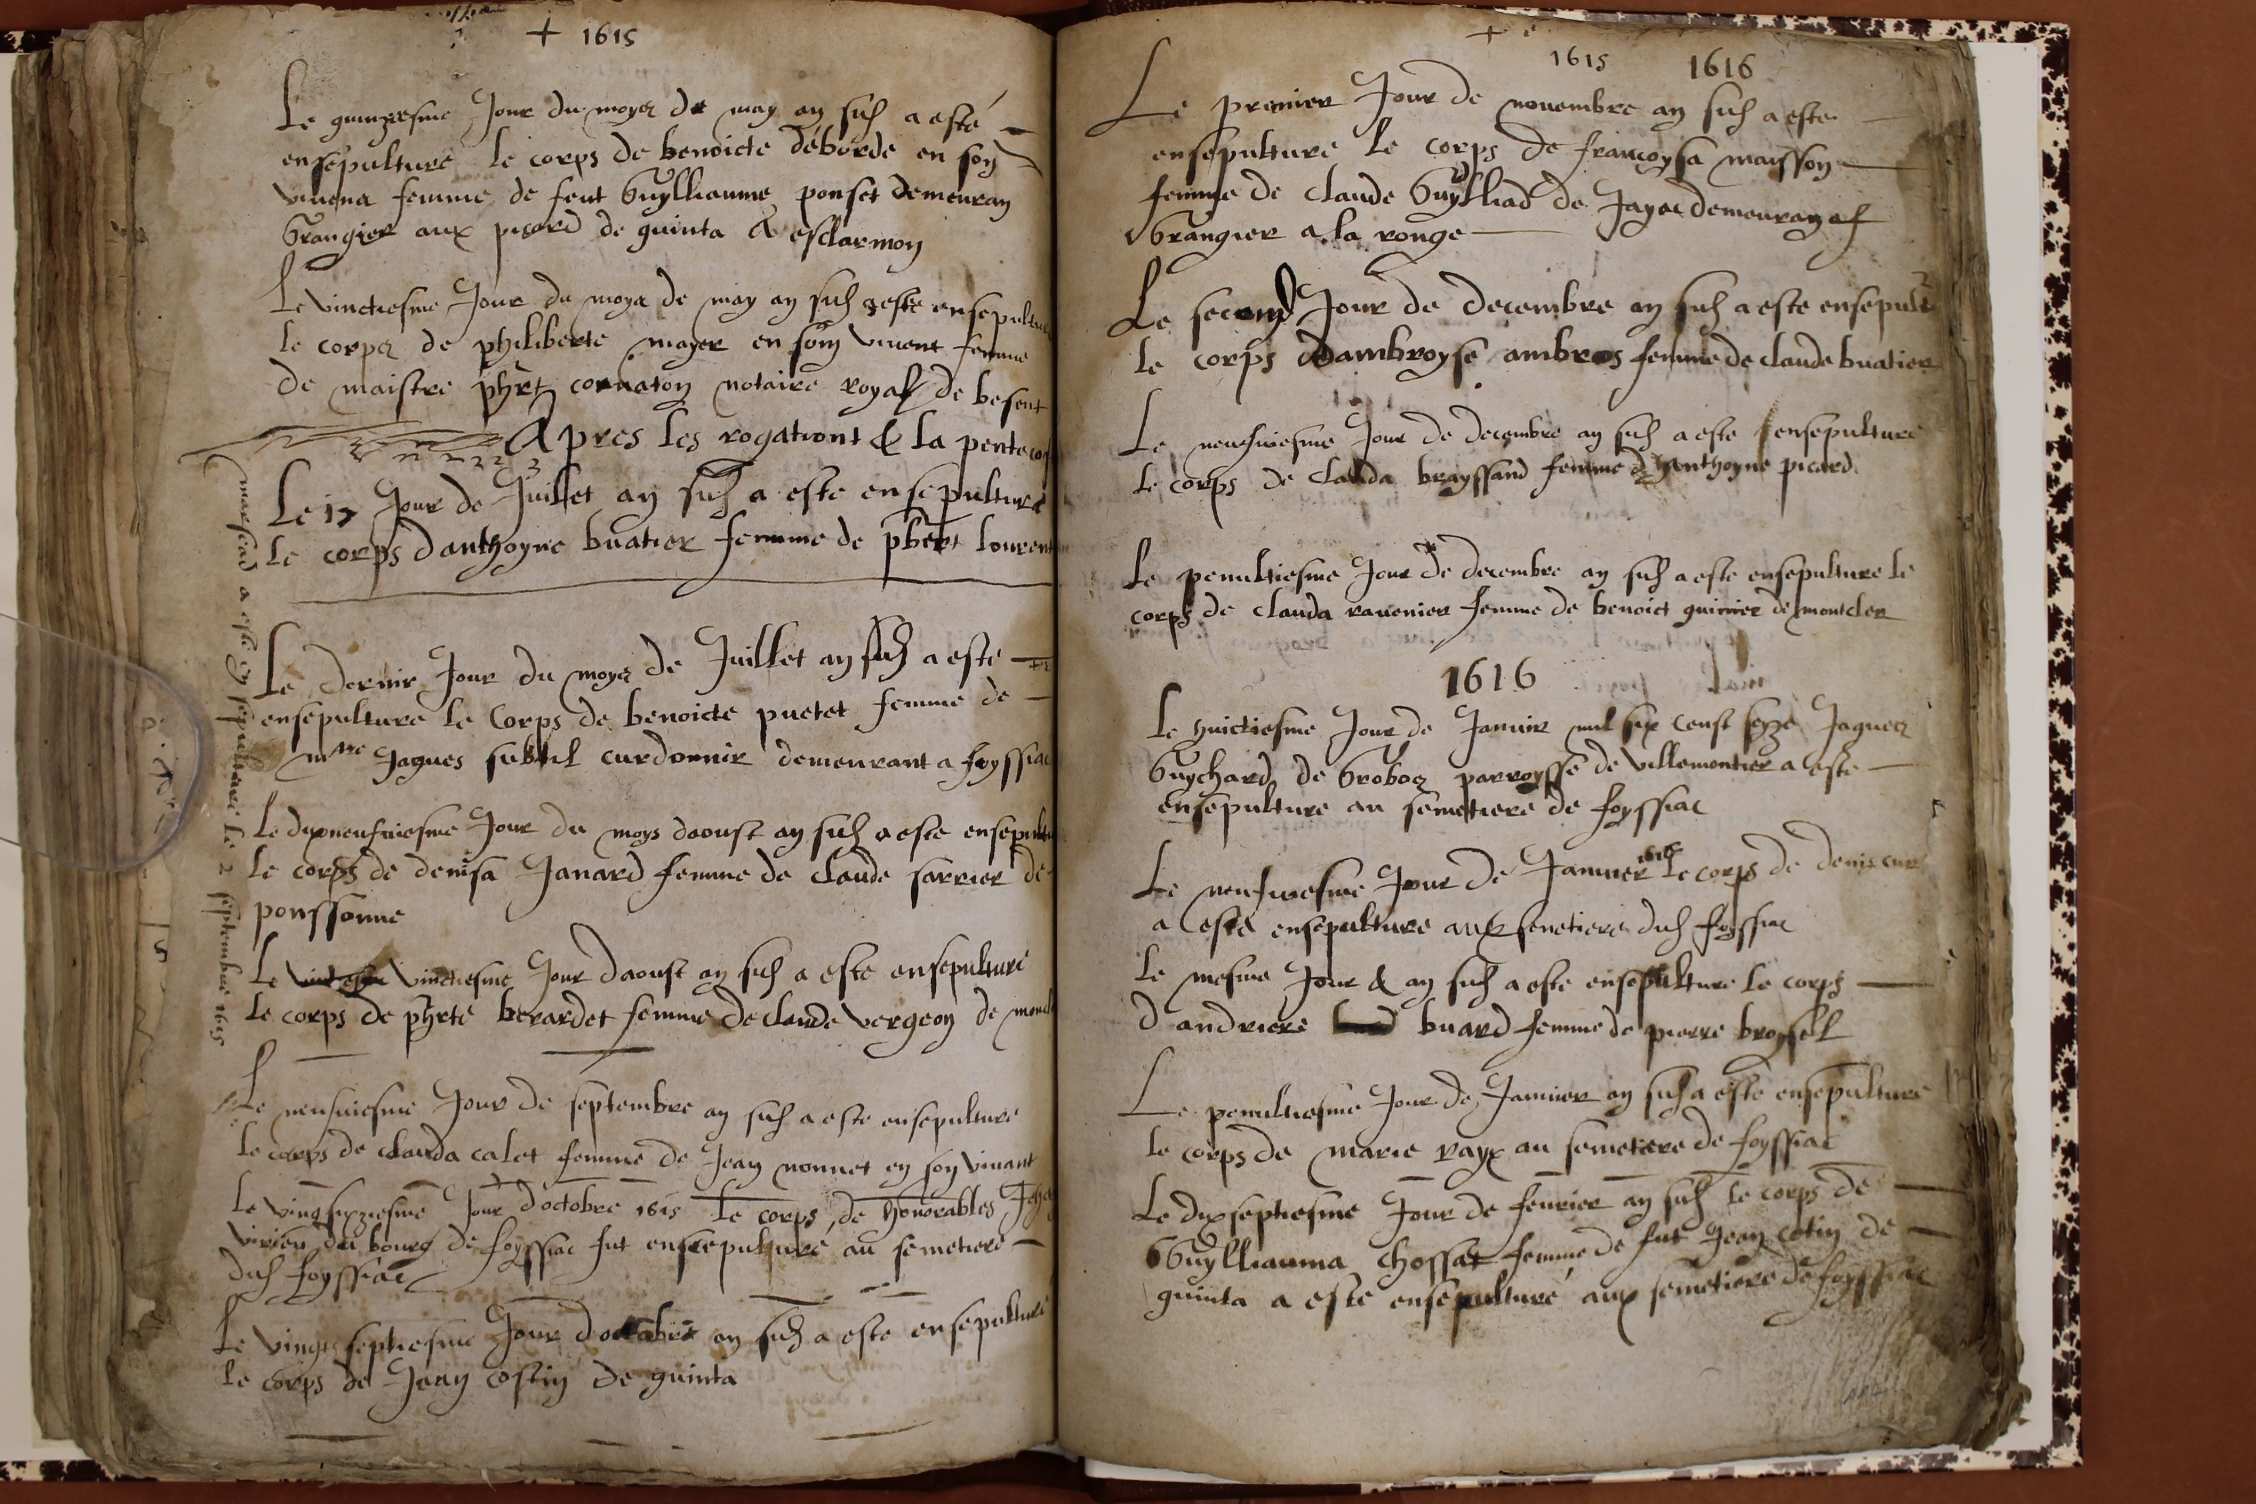 + 1615
Le quinziesme Jour du moys de may an susd a esté
ensepulturé le corps de benoicte deborde en son
vivena femme de feut Guylliaume ponset demeuran
Grangier aux picard de quinta & esclarmon
Le vinctiesme Jour du moys de may an susd a esté ensepultu
le corps de philiberte mayer en som vivent femme
de maistre phrt cornaton notaire royal de besent
Apres les rogationt & la penteco
Le 17 Jour de Juillet an susd a este ensepulture
Le corps danthoyne buatier femme de pbert lourent
Le dernir Jour du moys de Juillet an susd a este
ensepulture le Corps de benoicte puetet femme de
mre Jaques subtil curdonnir demeurant a foyssiac
Le dixneufviesme Jour du moys daoust an susd a este ensepultu
Le corps de denisa Janard femme de Claude sarrier de
poussonne
Le vinctiesme Jour daoust an susd a este ensepulture
Le corps de phrte berardet femme de claude vergeon de moncl
Le neufviesme Jour de septembre an susd a este ensepulture
le corps de clauda calet femme de Jean nonnet en son vivant
Le vingsixziesme Jour d'octobre 1615 Le corps de honorables Jeha
virieu du bourg de foyssiac fut ensepulturé au semetiere
dud foyssiac
Le vingt septiesme Jour d'octobre an susd a este ensepulture
le corps de Jean costin de quinta
marscad a este ensepulturé le 2 septembre 1615
+
1615 1616
Le premier Jour de novembre an susd a este
ensepulture le corps de francoysa maisson
femme de claude Guylliad de Jayac demeuran al
Grangier a la rouge
Le second Jour de decembre an susd a este ensepult
le corps dambroyse ambros femme de claude buatier
Le neufviesme Jour de decembre an susd a este ensepulture
le corps de clauda brayssand femme d'anthoyne picard
Le penultiesme Jour de decembre an susd a este ensepulture le
corps de clauda ravenier femme de benoict guirrier de montcler
1616
Le huictiesme Jour de Janvir mil six cent sezze Jaques
Guychard de Grobos parroysse de Villemontier a este
ensepulture au semetiere de foyssiac
Le neufviesme Jour de Janvier 1616 le corps de denis cur
a esté ensepulture aux semetiere dud foyssiac
Le mesme Jour & an susd a este ensepulture le corps
d andriere buard femme de pierre broysel
Le penultiesme Jour de Janvier an susd a este ensepulture
le corps de marie rayx au semetiere de foyssiac
Le dixseptiesme Jour de fevrier an susd le corps de
Guylliauma chossat femme de fut Jean cotin de
quinta a este ensepulturé aux semetiere de foyssiac